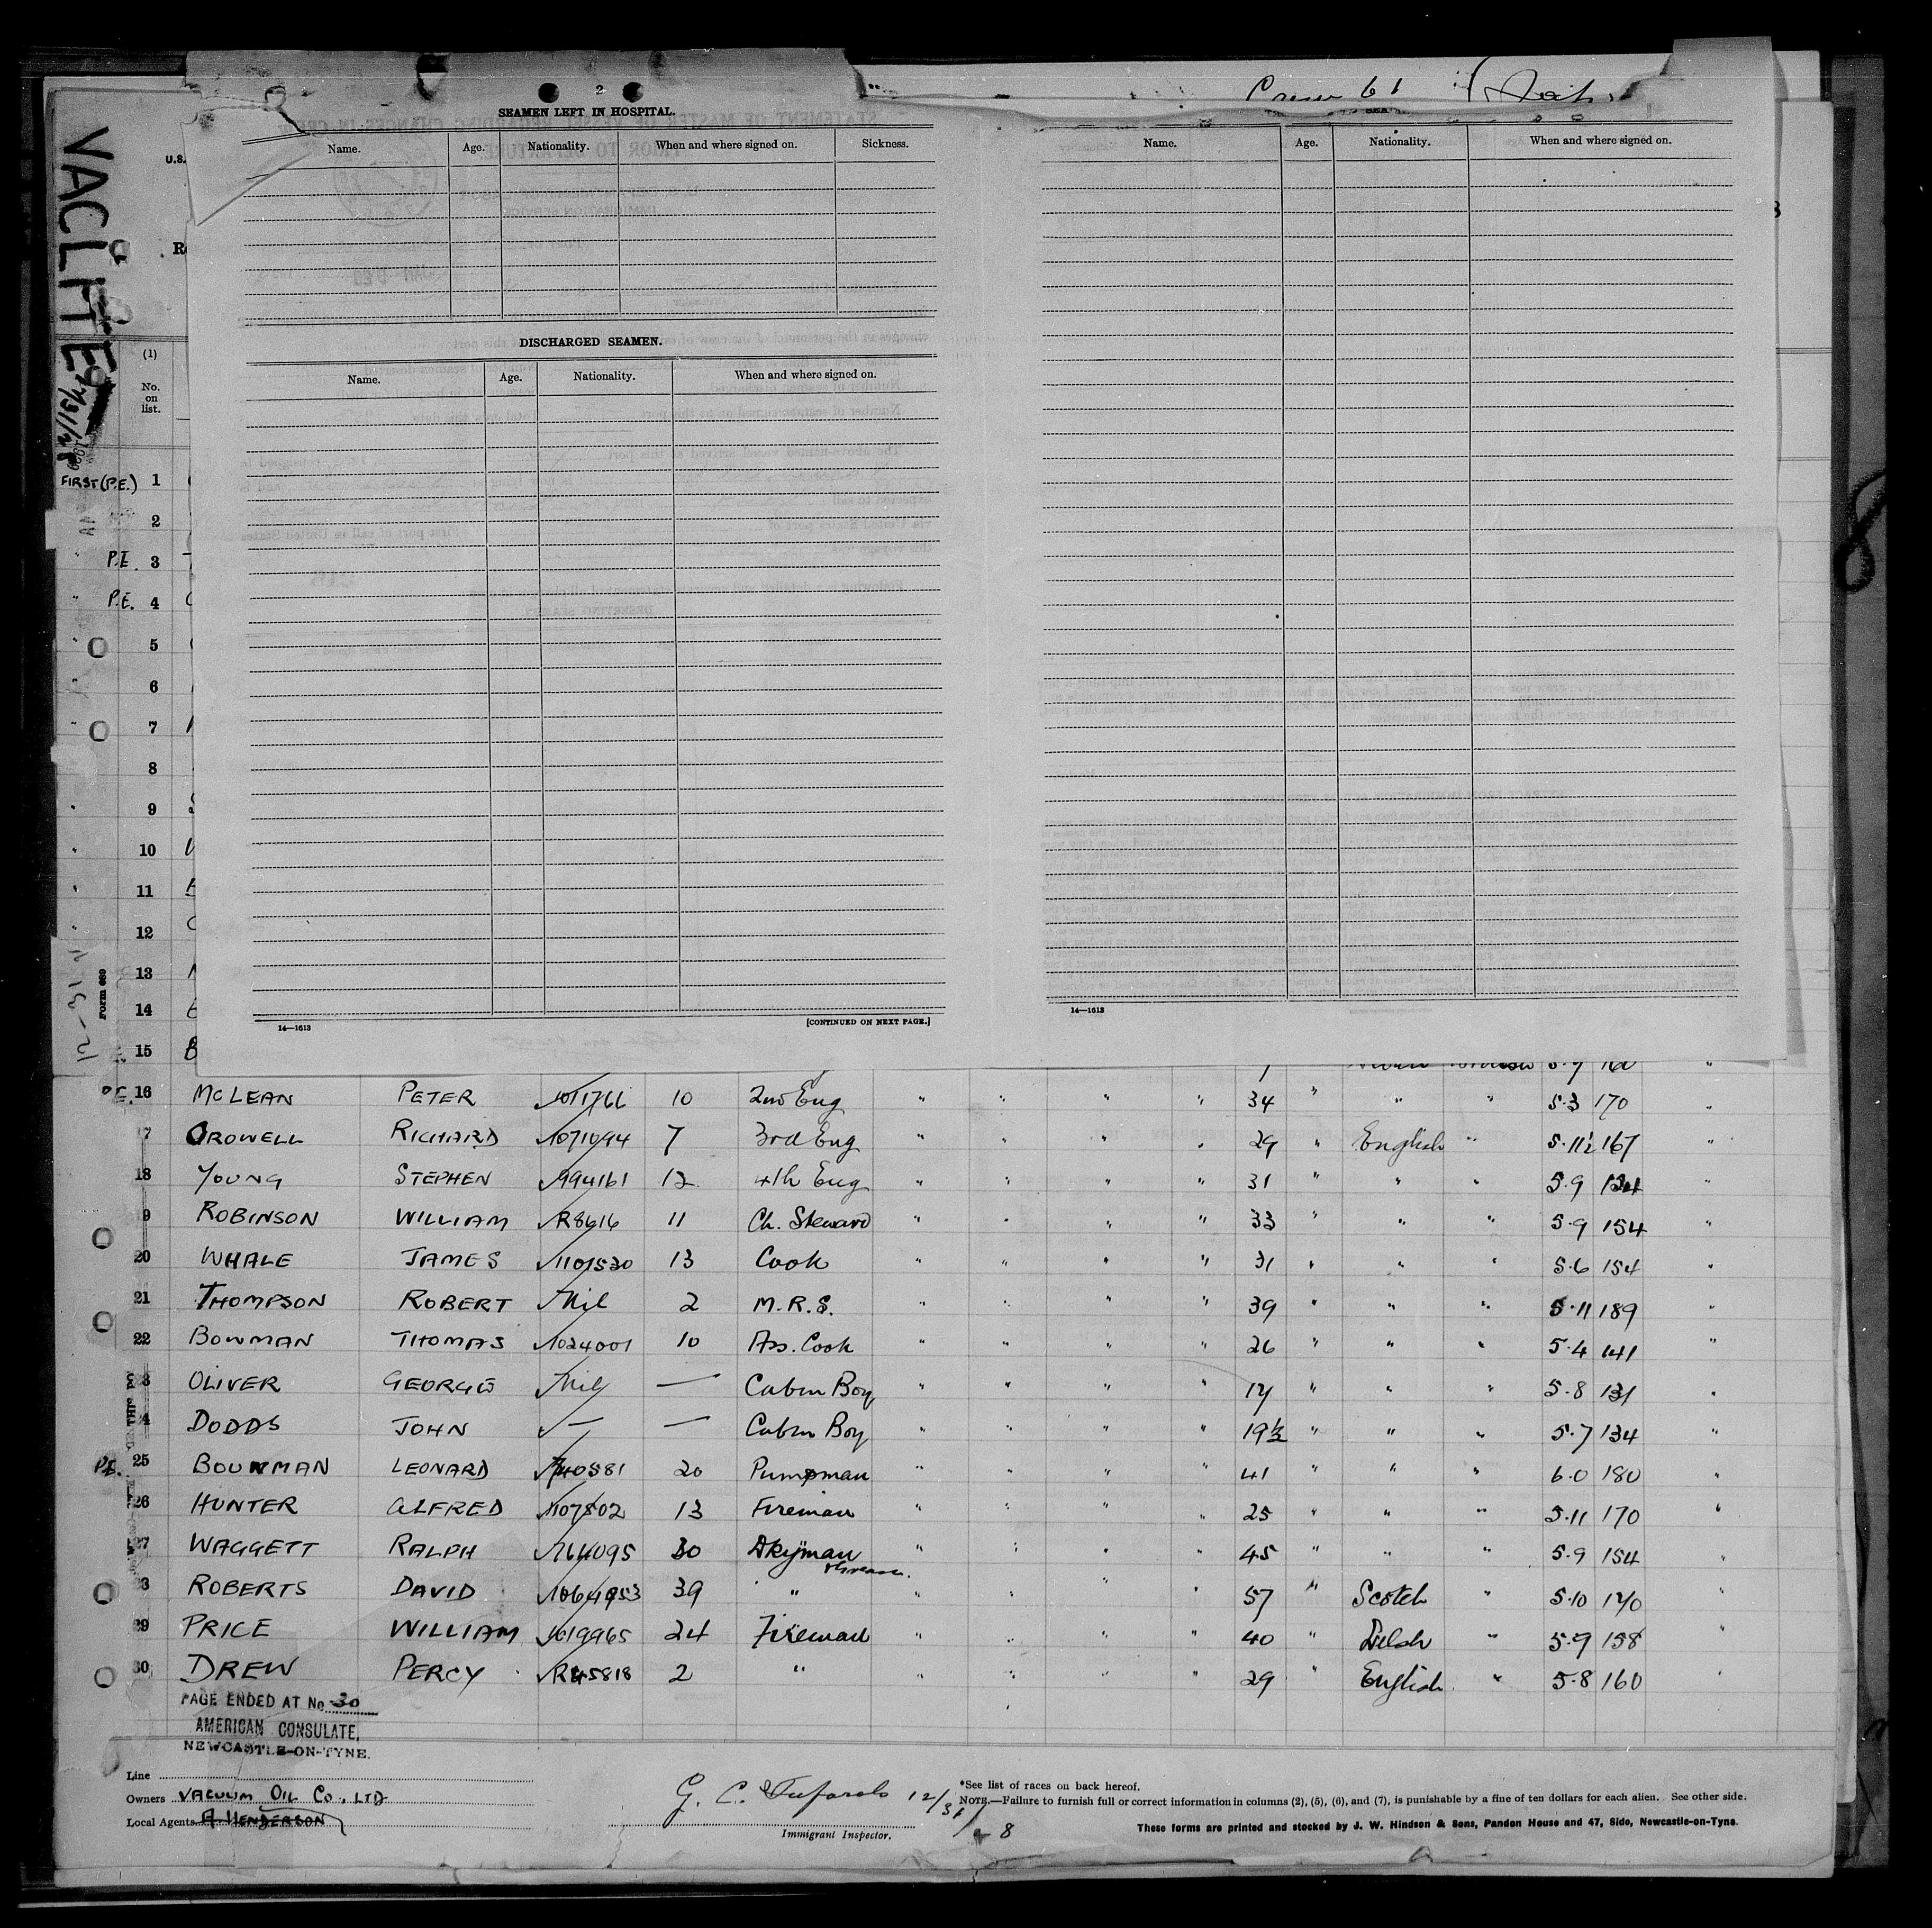 Crew 61
2
SEAMEN LEFT IN HOSPITAL.
Name. Age. Nationality. When and where signed on. Sickness.
Name. Age. Nationality. When and where signed on.
VACLITE
U.S.
DISCHARGED SEAMEN.
Name. Age. Nationality. When and where signed on.
(1)
No. on list.
FIRST (P.E.) 1
2
P.E. 3
P.E. 4
5
6
7
8
9
10
11
12
13
14
15
Form 689
14—1613 [CONTINUED ON NEXT PAGE.]
14—1613
8
P.E. 16 McLEAN PETER 10 2nd Eng " " " " 34 " " " 5.3 170 "
ROWELL RICHARD 1071094 7 3rd Eng " " " " 29 " English " 5.11½ 167 "
18 YOUNG STEPHEN 994161 12 4th Eng " " " " 31 " " " 5.9 "
ROBINSON WILLIAM R8616 11 Ch. Steward " " " " 33 " " " 5.9 154 "
20 WHALE JAMES 1101530 13 Cook " " " " 31 " " " 5.6 154 "
21 THOMPSON ROBERT Nil 2 M.R.S. " " " " 39 " " " 5.11 189 "
22 BOWMAN THOMAS 1024001 10 Ass. Cook " " " " 26 " " " 5.4 141 "
OLIVER GEORGE Nil — Cabin Boy " " " " 17 " " " 5.8 131 "
DODDS JOHN — — Cabin Boy " " " " 19½ " " " 5.7 134 "
P.E. 25 BOWMAN LEONARD 20 Pumpman " " " " 41 " " " 6.0 180 "
26 HUNTER ALFRED 1107802 13 Fireman " " " " 25 " " " 5.11 170 "
WAGGETT RALPH 30 Dkyman " " " " 45 " " " 5.9 154 "
ROBERTS DAVID 1064953 39 " " " " " 57 " Scotch " 5.10 140 "
29 PRICE WILLIAM 24 Fireman " " " " 40 " Welsh " 5.9 158 "
30 DREW PERCY R45818 2 " " " " " 29 " English " 5.8 160 "
PAGE ENDED AT No. 30
AMERICAN CONSULATE,
NEWCASTLE-ON-TYNE.
Line
Owners VACUUM OIL CO., LTD
Local Agents A. HENDERSON
G. C. 12/31/28
Immigrant Inspector.
*See list of races on back hereof.
NOTE.—Failure to furnish full or correct information in columns (2), (5), (6), and (7), is punishable by a fine of ten dollars for each alien. See other side.
These forms are printed and stocked by J. W. Hindson & Sons, Pandon House and 47, Side, Newcastle-on-Tyne.